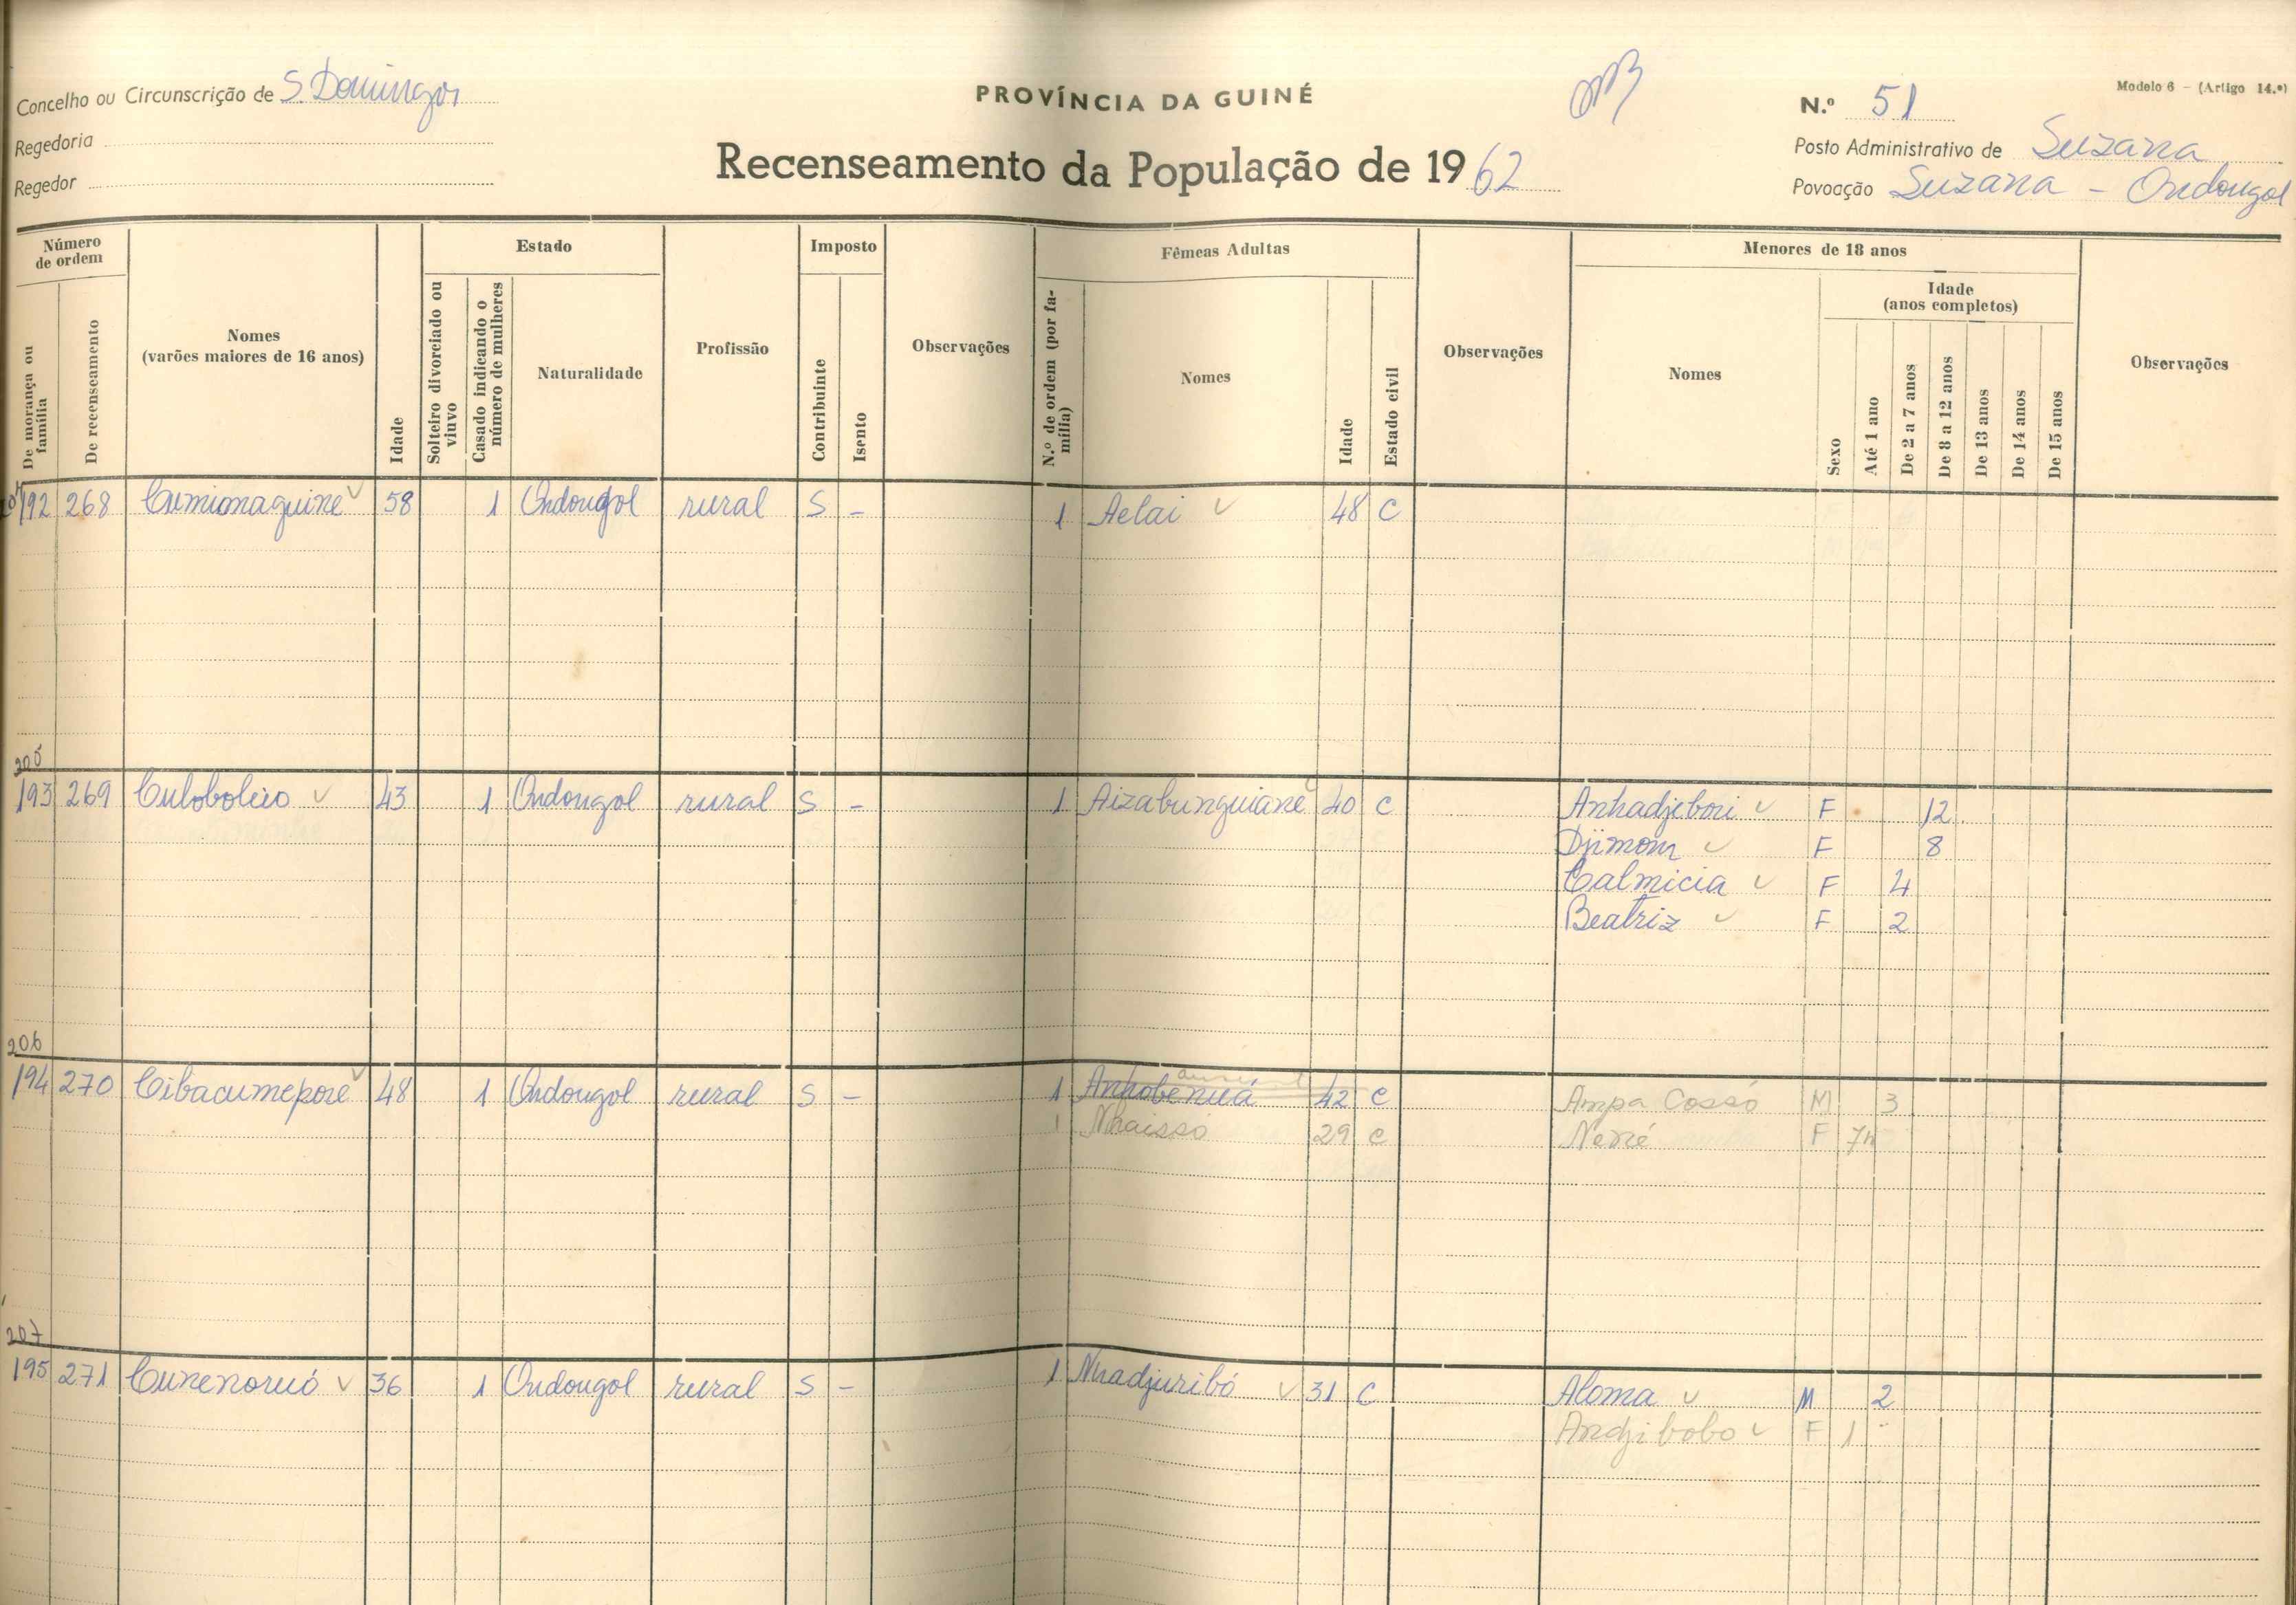 Concelho ou Circunscrição de S. Domingos
Regedoria
Regedor
PROVÍNCIA DA GUINÉ
Recenseamento da População de 1962
Modelo 6 - (Artigo 14.º)
N.º 51
Posto Administrativo de Suzana
Povoação Suzana - Ondougol
Número de ordem
De morança ou família
De recenseamento
Nomes
(varões maiores de 16 anos)
Idade
Estado
Solteiro divorciado ou viuvo
Casado indicando o número de mulheres
Naturalidade
Profissão
Imposto
Contribuinte
Isento
Observações
Fêmeas Adultas
N.º de ordem (por família)
Nomes
Idade
Estado civil
Observações
Menores de 18 anos
Nomes
Sexo
Idade
(anos completos)
Até 1 ano
De 2 a 7 anos
De 8 a 12 anos
De 13 anos
De 14 anos
De 15 anos
Observações
192 268 Cumiomaguine 58 1 Ondougol rural S - 1 Aelai 48 C
205
193 269 Culoboleio 43 1 Ondougol rural S - 1 Aizabunguiane 40 C Anhadjebori F 12
Djimom F 8
Calmicia F 4
Beatriz F 2
206
194 270 Cibacumeporé 48 1 Ondougol rural S - 1 Anhobenuá 42 C Ampa Cossó M 3
1 Nhaisso 29 C Nené F 7m
207
195 271 Cunenoruó 36 1 Ondougol rural S - 1 Nhadjuribó 31 C Aloma M 2
Andjibobo F 1